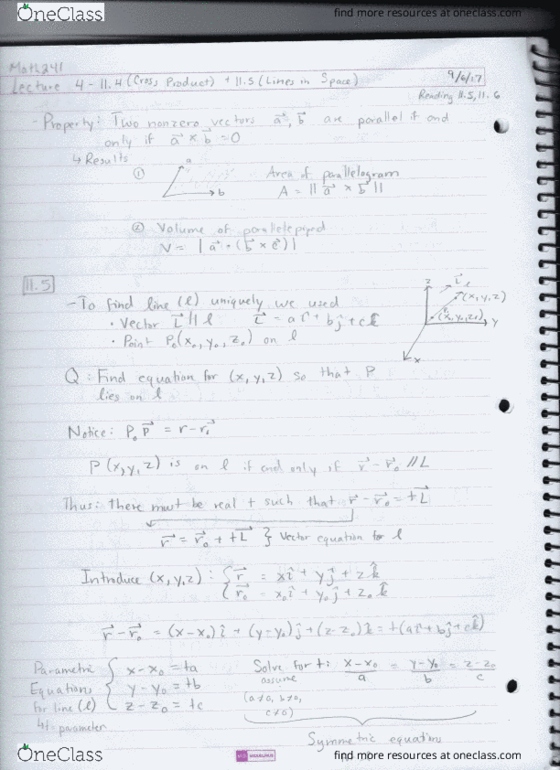 OneClass
find more resources at oneclass.com
Math 241
Lecture 4 - 11.4 (Cross Product) + 11.5 (Lines in Space) 9/6/17
Reading 11.5, 11.6
- Property: Two nonzero vectors a⃗, b⃗ are parallel if and
only if a⃗ × b⃗ = 0
↳ Results
① a b Area of parallelogram
A = ||a⃗ × b⃗||
② Volume of parallelepiped
V = |a⃗ · (b⃗ × c⃗)|
11.5
- To find line (l) uniquely we used
• Vector L⃗ // l L⃗ = aî + bĵ + ck̂
• Point P₀(x₀, y₀, z₀) on l
z L⃗ l (x, y, z) (x₀, y₀, z₀) y x
Q: Find equation for (x, y, z) so that P
lies on l
Notice: P₀P⃗ = r - r₀⃗
P(x, y, z) is on l if and only if r⃗ - r₀⃗ // L
Thus: there must be real t such that r⃗ - r₀⃗ = tL⃗
r⃗ = r₀⃗ + tL⃗ } Vector equation for l
Introduce (x, y, z): { r⃗ = xî + yĵ + zk̂
{ r₀⃗ = x₀î + y₀ĵ + z₀k̂
r⃗ - r₀⃗ = (x-x₀)î + (y-y₀)ĵ + (z-z₀)k̂ = t(aî + bĵ + ck̂)
Parametric { x - x₀ = ta Solve for t: (x-x₀)/a = (y-y₀)/b = (z-z₀)/c
Equations { y - y₀ = tb assume
for line (l) { z - z₀ = tc (a≠0, b≠0,
c≠0)
t: parameter
Symmetric equations
OneClass
find more resources at oneclass.com